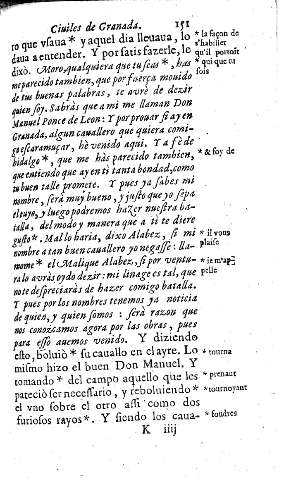 Ciuiles de Granada. 151
ro que vſaua* y aquel dia lleuaua, lo
daua a entender. Y por ſatisfazerle, lo
dixò. Moro, qualquiera que tu ſeas*, has
me parecido tambien, que por fuerça mouido
de tus buenas palabras, te aurè de dezir
quien ſoy. Sabràs que a mi me llaman Don
Manuel Ponce de Leon: Y por prouar ſi ay en
Granada, algun cauallero que quiera comi-
go eſcaramuçar, hè venido aqui. Y a fè de
hidalgo*, que me hàs parecido tambien,
que entiendo que ay en ti tanta bondad, como
tu buen talle promete. Y pues ya ſabes mi
nombre, ſerà muy bueno, y juſto que yo ſepa
el tuyo, y luego podremos hazer nueſtra ba-
talla, del modo y manera que a ti te diere
guſto*, Mal lo haria, dixo Alabez, ſi mi
nombre a tan buen cauallero yo negaſſe: lla-
nome* el Malique Alabez, ſi por ventu-
ra lo auràs oydo dezir: mi linage es tal, que
no te despreciaràs de hazer comigo batalla.
Y pues por los nombres tenemos ya noticia
de quien, y quien ſomos: ſerà razon que
nos conozcamos agora por las obras, pues
para eſſo auemos venido. Y diziendo
eſto, boluiò* ſu cauallo en el ayre. Lo
miſmo hizo el buen Don Manuel. Y
tomando* del campo aquello que les
pareciò ſer neceſſario, y reboluiendo*
el vno ſobre el otro aſſi como dos
furioſos rayos*. Y ſiendo los caua-
K iiij
* la façon de
s'habiller
qu'il portoit
* qui que tu
ſois
* & foy de
* il vous
plaiſe
* je m'ap-
pelle
* tourna
* prenant
* tournoyant
* foudres